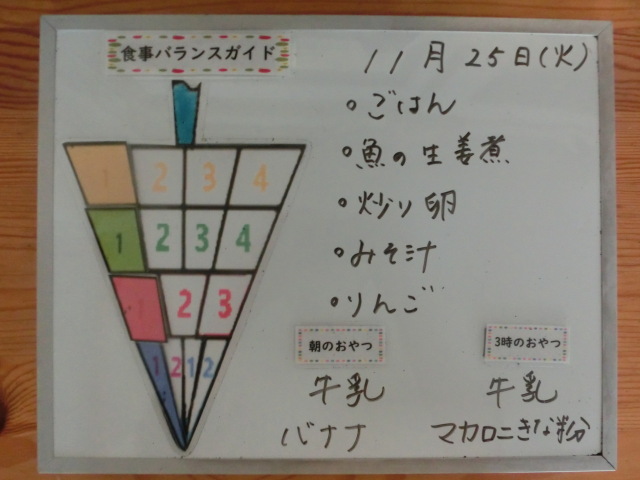 食事バランスガイド
11月25日(火)
1 2 3 4
1 2 3 4
1 2 3
1 2 1 2
。ごはん
。魚の生姜煮
。炒り卵
。みそ汁
。りんご
朝のおやつ
牛乳
バナナ
3時のおやつ
牛乳
マカロニきな粉